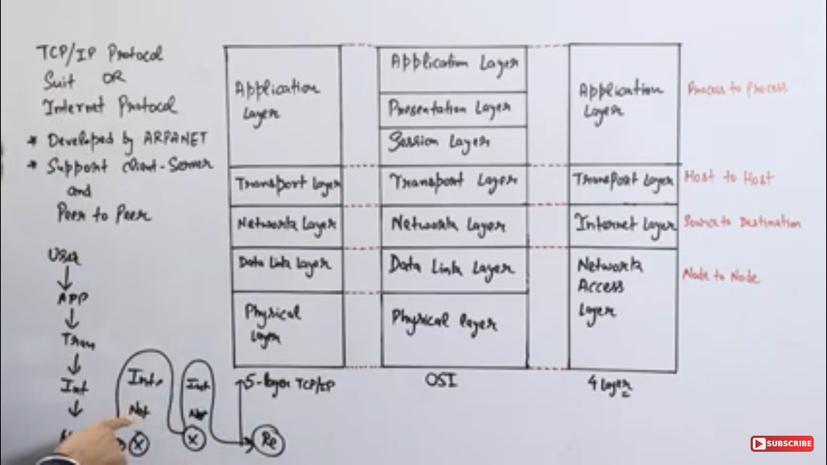 TCP/IP Protocol
Suit OR
Internet Protocol
* Developed by ARPANET
* Support Client-Server
and
Peer to Peer
User
APP
Tran
Int
Application
Layer
Transport Layer
Network Layer
Data Link Layer
Physical
Layer
5-layer TCP/IP
Application Layer
Presentation Layer
Session Layer
Transport Layer
Network Layer
Data Link Layer
Physical layer
OSI
Application
Layer
Transport Layer
Internet Layer
Network
Access
Layer
4 Layer
Process to Process
Host to Host
Source to Destination
Node to Node
Int
Net
X
Int
Net
X
Re
SUBSCRIBE